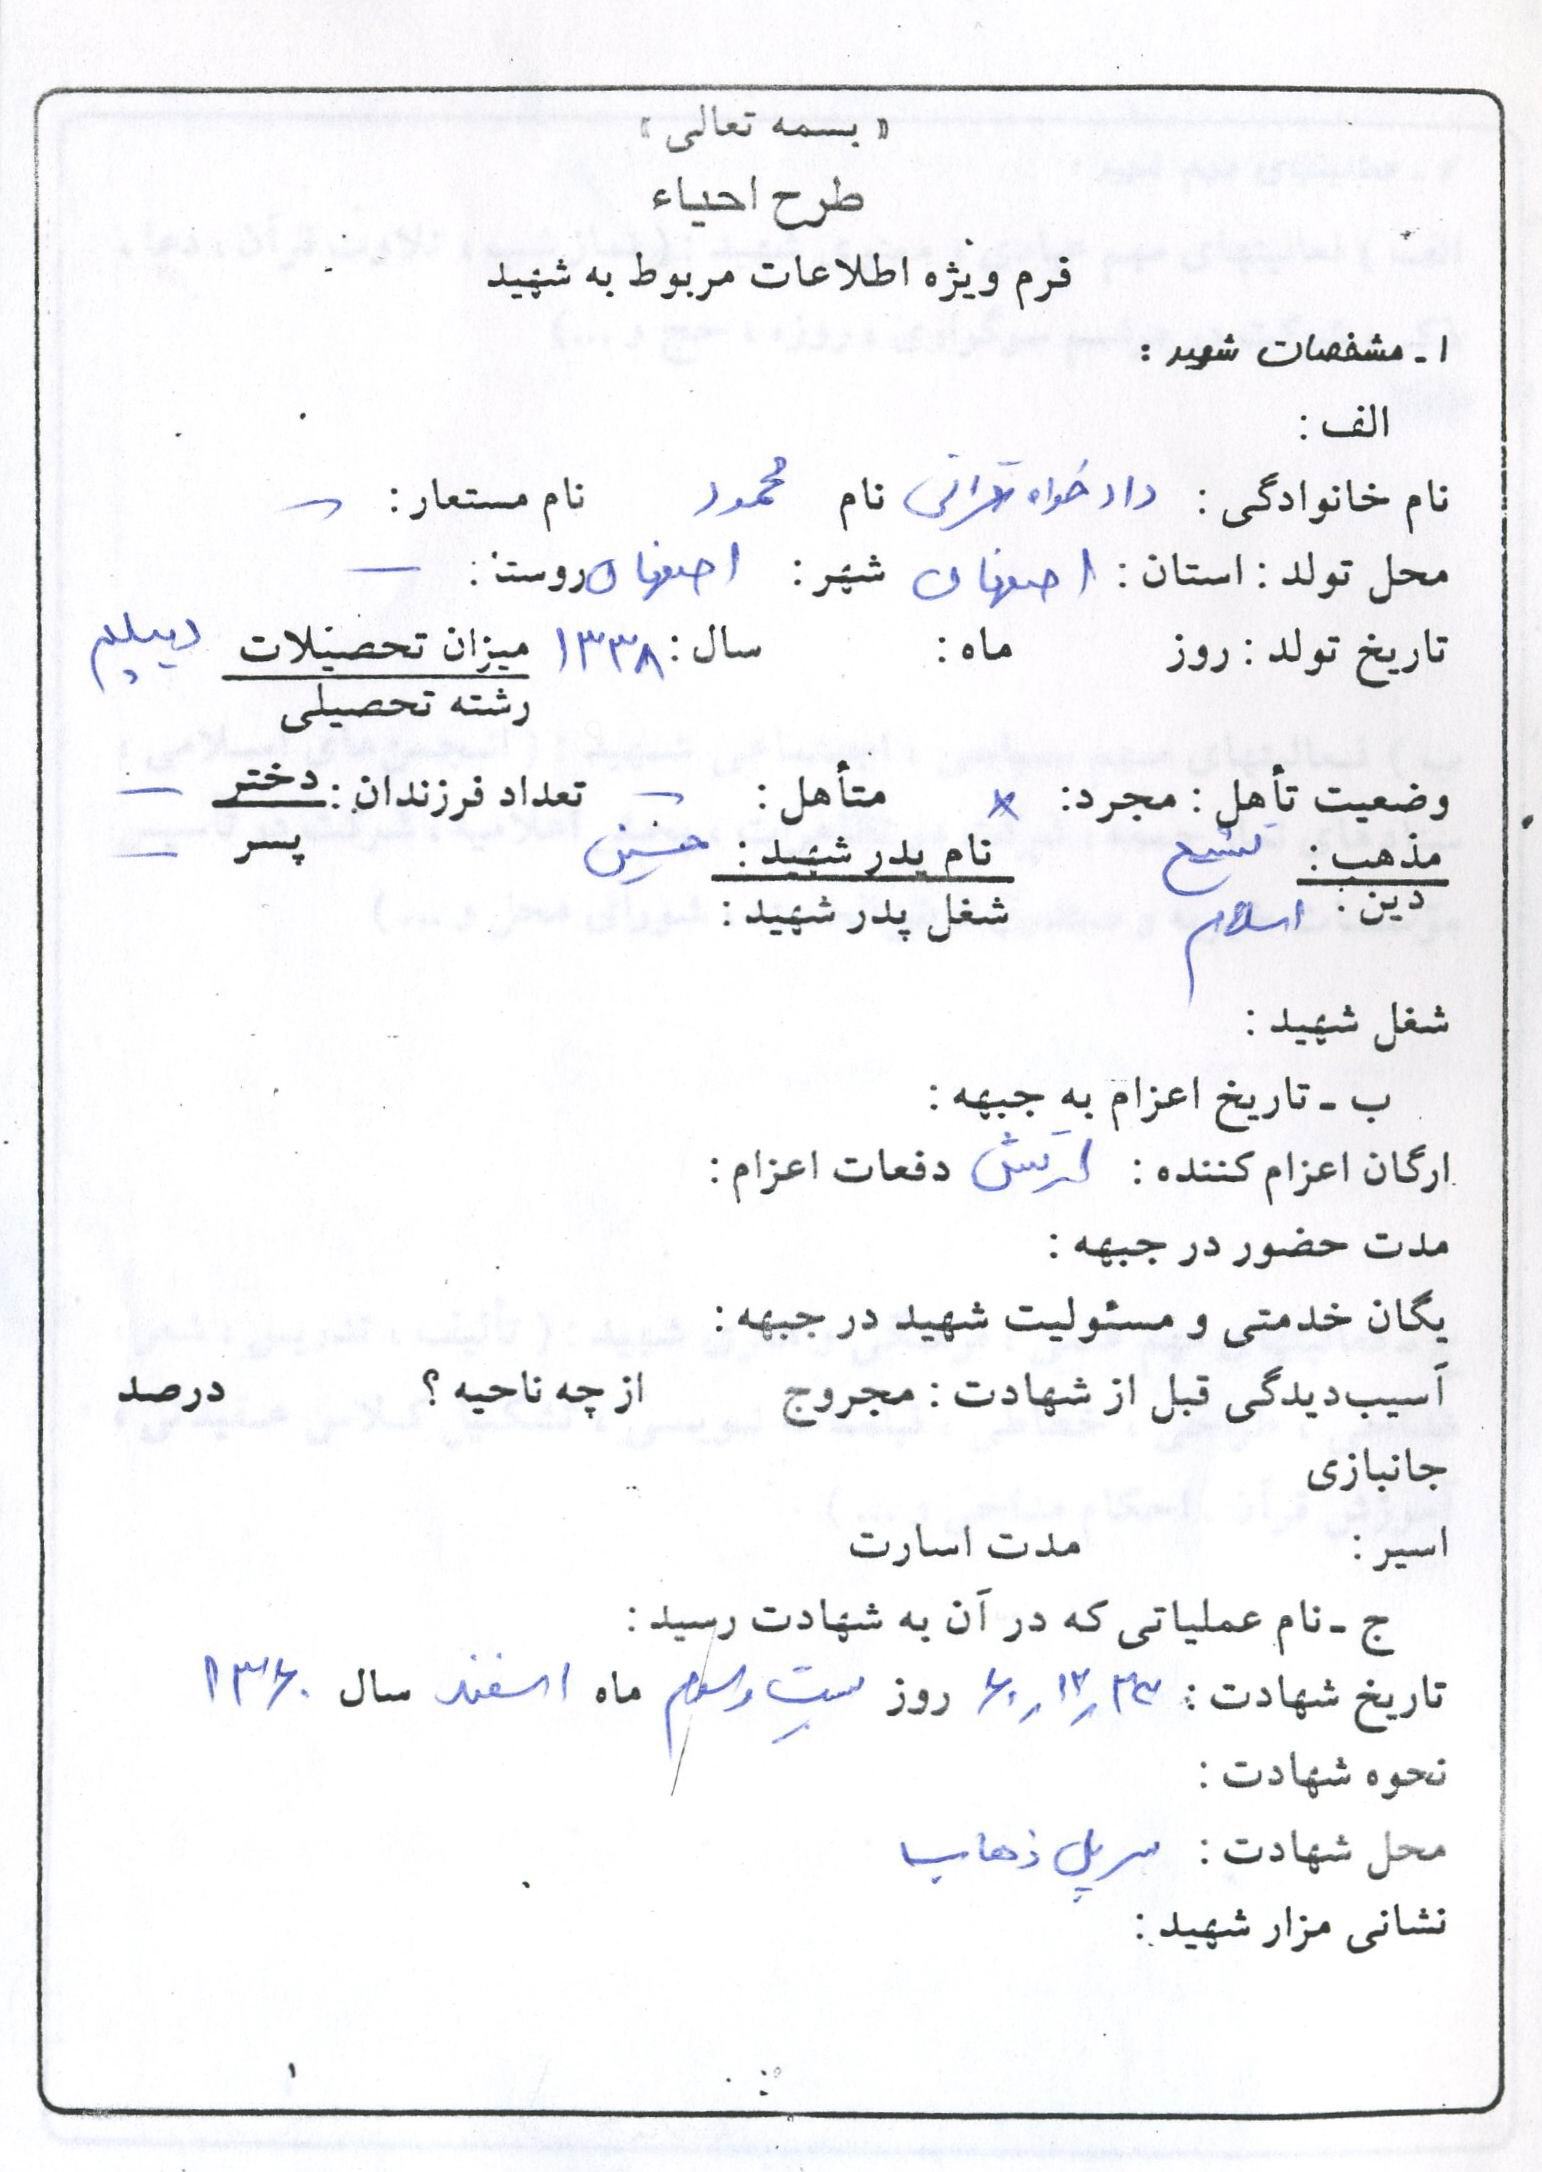 « بسمه تعالی »
طرح احیاء
فرم ویژه اطلاعات مربوط به شهید
۱ ـ مشخصات شهید :
الف :
نام خانوادگی : دادخواه تهرانی نام محمود نام مستعار : —
محل تولد : استان : اصفهان شهر : اصفهان روستا : —
تاریخ تولد : روز ماه : سال : ۱۳۳۸ میزان تحصیلات دیپلم
رشته تحصیلی
وضعیت تأهل : مجرد : × متأهل : — تعداد فرزندان : دختر —
مذهب : تشیع نام پدر شهید : حسین پسر —
دین : اسلام شغل پدر شهید :
شغل شهید :
ب ـ تاریخ اعزام به جبهه :
ارگان اعزام کننده : ارتش دفعات اعزام :
مدت حضور در جبهه :
یگان خدمتی و مسئولیت شهید در جبهه :
آسیب‌دیدگی قبل از شهادت : مجروح از چه ناحیه ؟ درصد
جانبازی
اسیر : مدت اسارت
ج ـ نام عملیاتی که در آن به شهادت رسید :
تاریخ شهادت : ۲۳ / ۱۲ / ۶۰ روز بیست و سوم ماه اسفند سال ۱۳۶۰
نحوه شهادت :
محل شهادت : سرپل ذهاب
نشانی مزار شهید :
۱